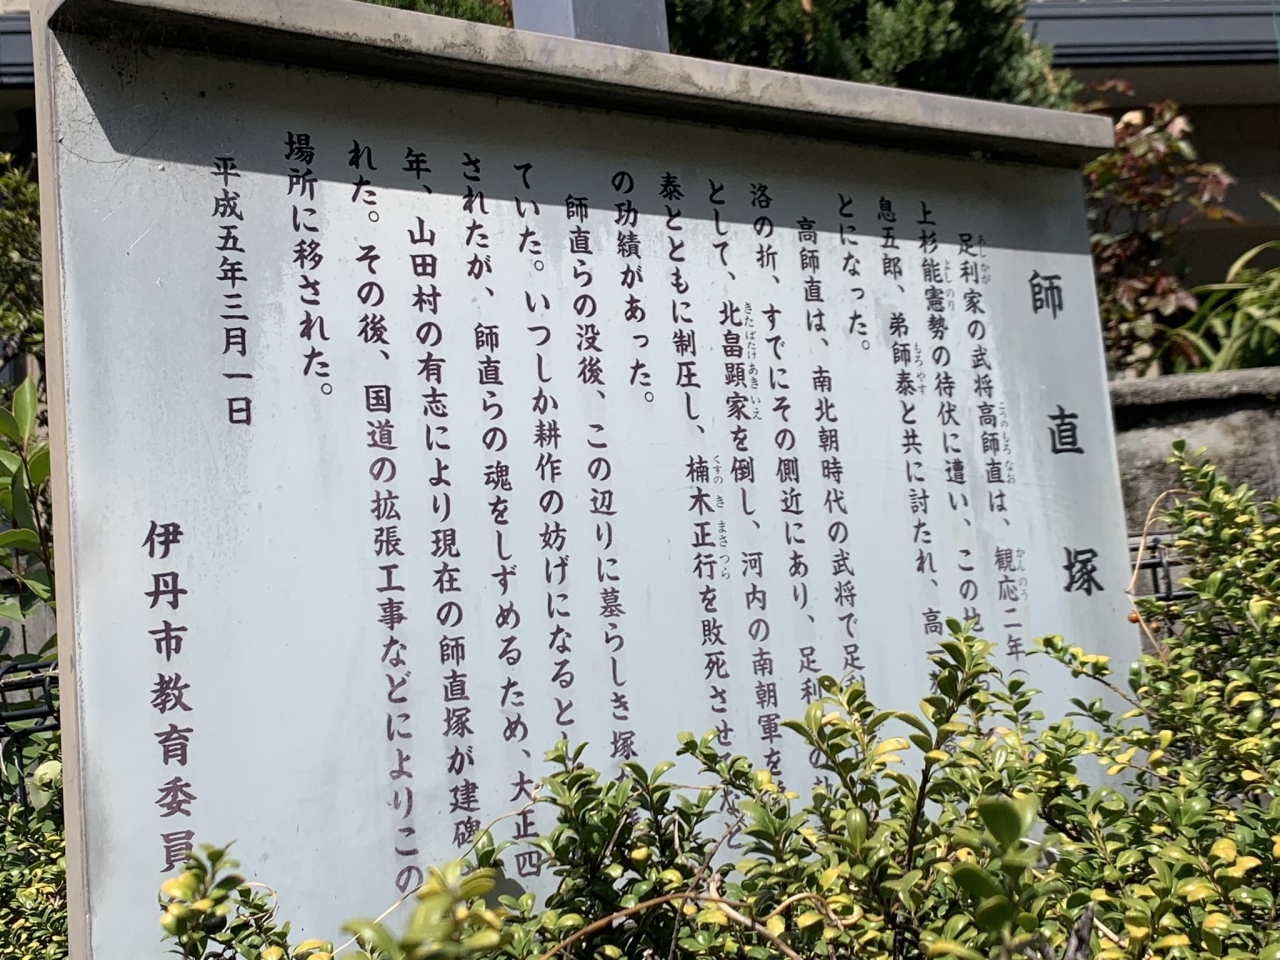 師直塚
足利家の武将高師直は、観応二年
上杉能憲勢の待伏に遭い、この地
息五郎、弟師泰と共に討たれ、高一
とになった。
高師直は、南北朝時代の武将で足利
洛の折、すでにその側近にあり、足利
として、北畠顕家を倒し、河内の南朝軍を
泰とともに制圧し、楠木正行を敗死させ
の功績があった。
師直らの没後、この辺りに墓らしき塚
ていた。いつしか耕作の妨げになると
されたが、師直らの魂をしずめるため、大正四
年、山田村の有志により現在の師直塚が建碑
れた。その後、国道の拡張工事などによりこの
場所に移された。
平成五年三月一日
伊丹市教育委員